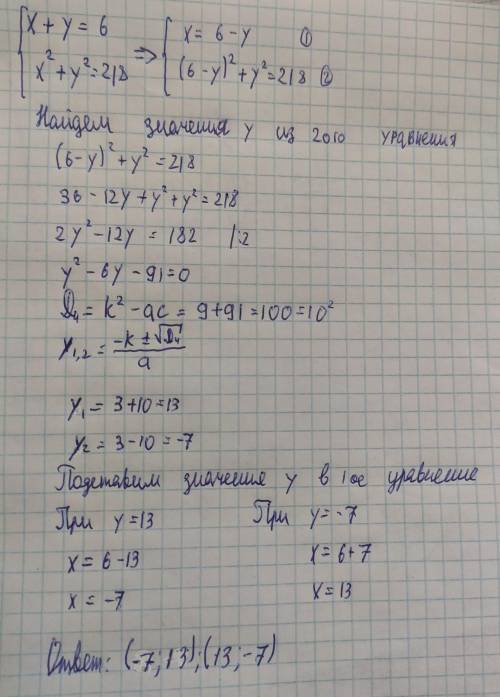 x + y = 6 => x = 6 - y ①
x² + y² = 218 (6-y)² + y² = 218 ②
Найдем значения y из 2ого уравнения
(6-y)² + y² = 218
36 - 12y + y² + y² = 218
2y² - 12y = 182 |:2
y² - 6y - 91 = 0
D₄ = k² - ac = 9 + 91 = 100 = 10²
y₁,₂ = (-k ± √D₄)/a
y₁ = 3 + 10 = 13
y₂ = 3 - 10 = -7
Подставим значения y в 1ое уравнение
При y = 13 При y = -7
x = 6 - 13 x = 6 + 7
x = -7 x = 13
Ответ: (-7; 13); (13; -7)